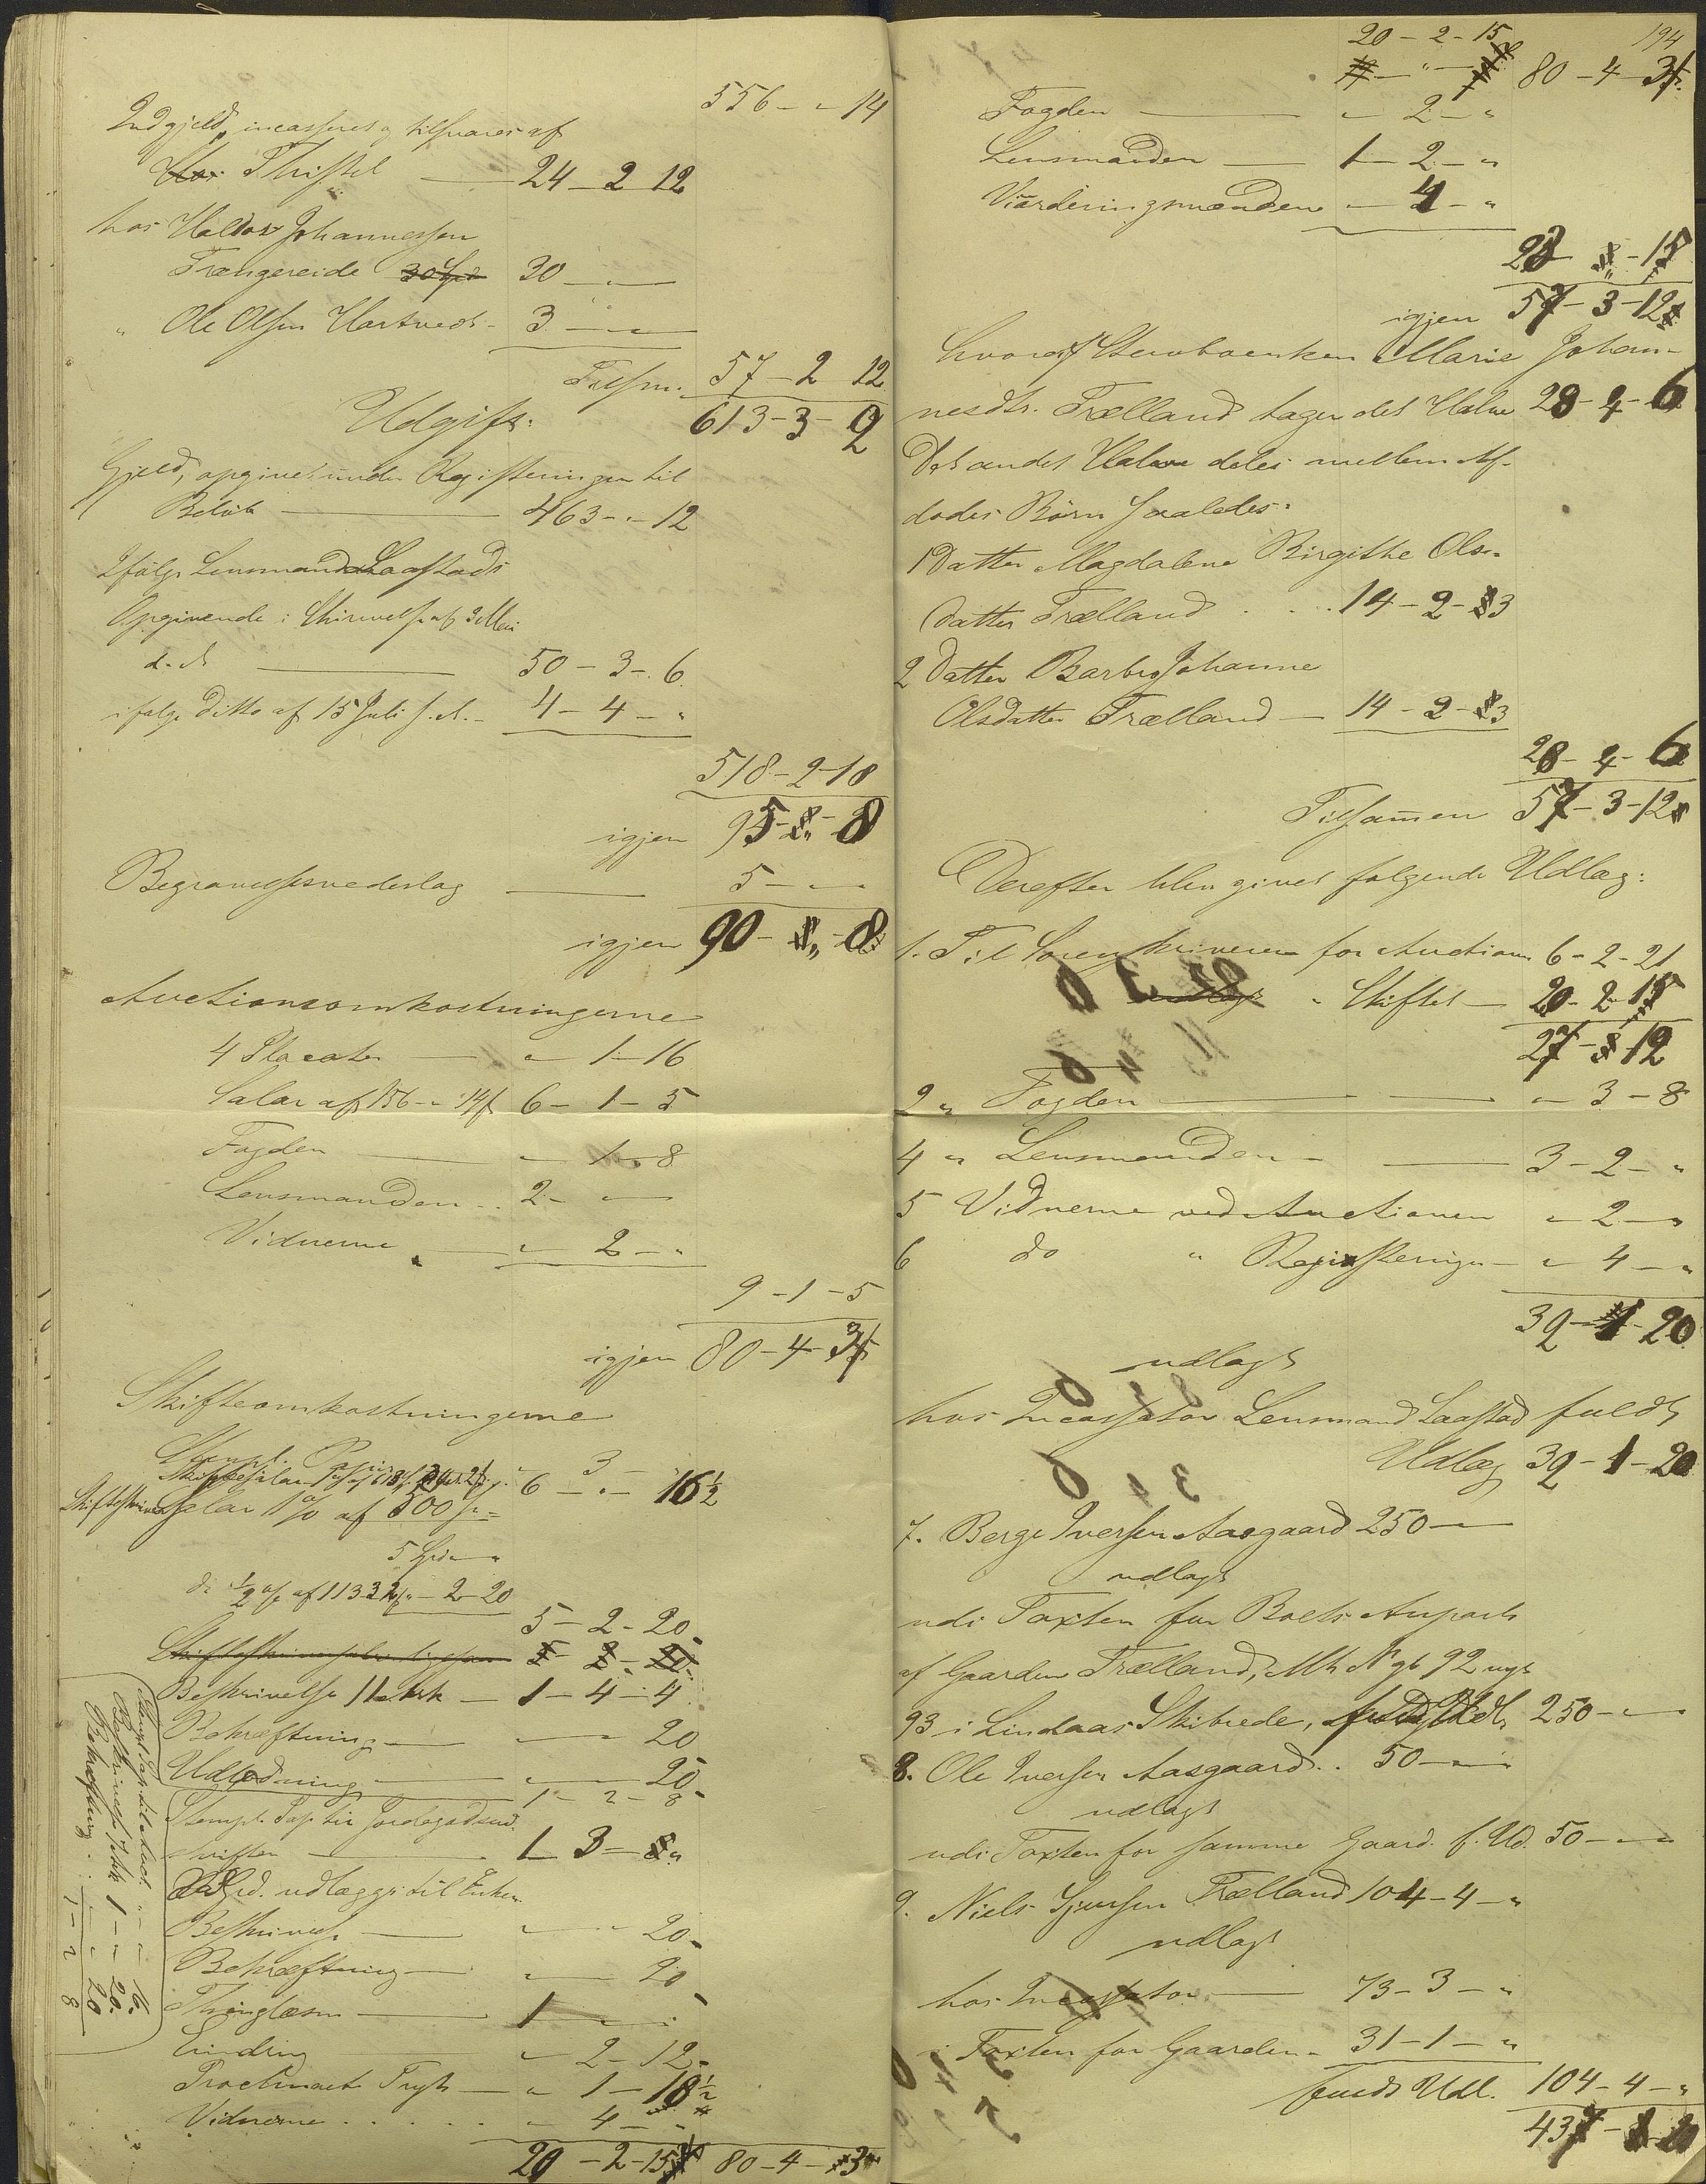 556 - " - 14
Indgjeld, incasseret og tilsvares af
Thistel — 24 - 2 - 12
hos Haldor Johannessen
Frængereide 30 - "
" Ole Olsen Hartvedt - 3 - "
Tilsm. 57 - 2 - 12
613 - 3 - 2
Udgift.
Gjeld, opgivet under Registeringen til
Beløb — 463 - " - 12
Ifølge Lensmand Laastads
Opgivende i Skrivelse af 3 Mai
d. A. — 50 - 3 - 6
ifølge Ditto af 15 Juli s. A. - 4 - 4 - "
518 - 2 - 18
igjen 95 - " - 8
Begravelsesvederlag — 5 - "
igjen 90 - " - 8
Auctionsomkostningerne
4 Placater — " - 1 - 16
Salar af 156 - " - 14 s 6 - 1 - 5
Fogden — " - 1 - 8
Lensmanden .. 2 - " -
Vidnerne — " - 2 - "
9 - 1 - 5
igjen 80 - 4 - 3
Skifteomkostningerne
Stempl. Papir 3
6 - " - 16½
Salar 1 % af 500 Spd =
5 Spd - "
do ½ % af 113 - 2 - 20
5 - 2 - 20
Beskrivelse 11 Ark — 1 - 4 - 4
Bekræftning — " - 20
Udlodning — " - 20
1 - 2 - 8
Stempl. Pap. til Jordegodsud-
skriften — 1 - 3 - "
udlægges til Enken
Beskrivelse — " - 20
Bekræftning — " - 20
Thinglæsn — 1
Eindring — " - 2 - 12
Proclmaet Trykt — " - 1 - 18½
Vidnerne . . . . . " - 4 - "
20 - 2 - 15 80 - 4 - 3
Stempl. Pap. til Auct. " - " - 16.
Beskrivelse 7 Ark 1 - " - 20.
Bekræftning . " - " - 20
1 - 2 - 8
194
20 - 2 - 15
80 - 4 - 3
Fogden — " - 2 - "
Lensmanden — 1 - 2 - "
Vurderingsmændene " - 4 - "
23 - " - 15
igjen 57 - 3 - 12
hvoraf Stervboenken Marie Johan-
nesdtr. Trælland tager det Halve 28 - 4 - 6
Det andet Halve deles mellem Af-
dødes Børn saaledes:
1 Datter Magdalene Birgithe Ols-
datter Trælland . . . 14 - 2 - 3
2 Datter Barbro Johanne
Olsdatter Trælland — 14 - 2 - 3
28 - 4 - 6
Tilsammen 57 - 3 - 12
Derefter blev givet følgende Udlæg:
1. Til Sorenskriveren for Auctionen 6 - 2 - 21
" Skiftet — 20 - 2 - 15
27 - " - 12
2 " Fogden — " - 3 - 8
4 " Lensmanden — 3 - 2 - "
5 Vidnerne ved Auctionen " - 2 - "
6 do " Registeringen — " - 4 - "
32 - 1 - 20
udlagt
hos Incassator Lensmand Laastad fuldt
Udlæg 32 - 1 - 20
7. Berge Iversen Aasgaard 250 - "
udlagt
udi Taxten for Boets Anpart
af Gaarden Trælland, Mt. No gl 92 nyt
93 i Lindaas Skibrede, fuldt Udl. 250 - "
8. Ole Iversen Aasgaard .. 50 - "
udlagt
udi Taxten for samme Gaard. f. Ud. 50 - "
9. Niels Sjursen Trælland 104 - 4 - "
udlagt
hos Incassator — 73 - 3 - "
i Taxten for Gaarden - 31 - 1 - "
fuldt Udl. 104 - 4 - "
437 - " - 20